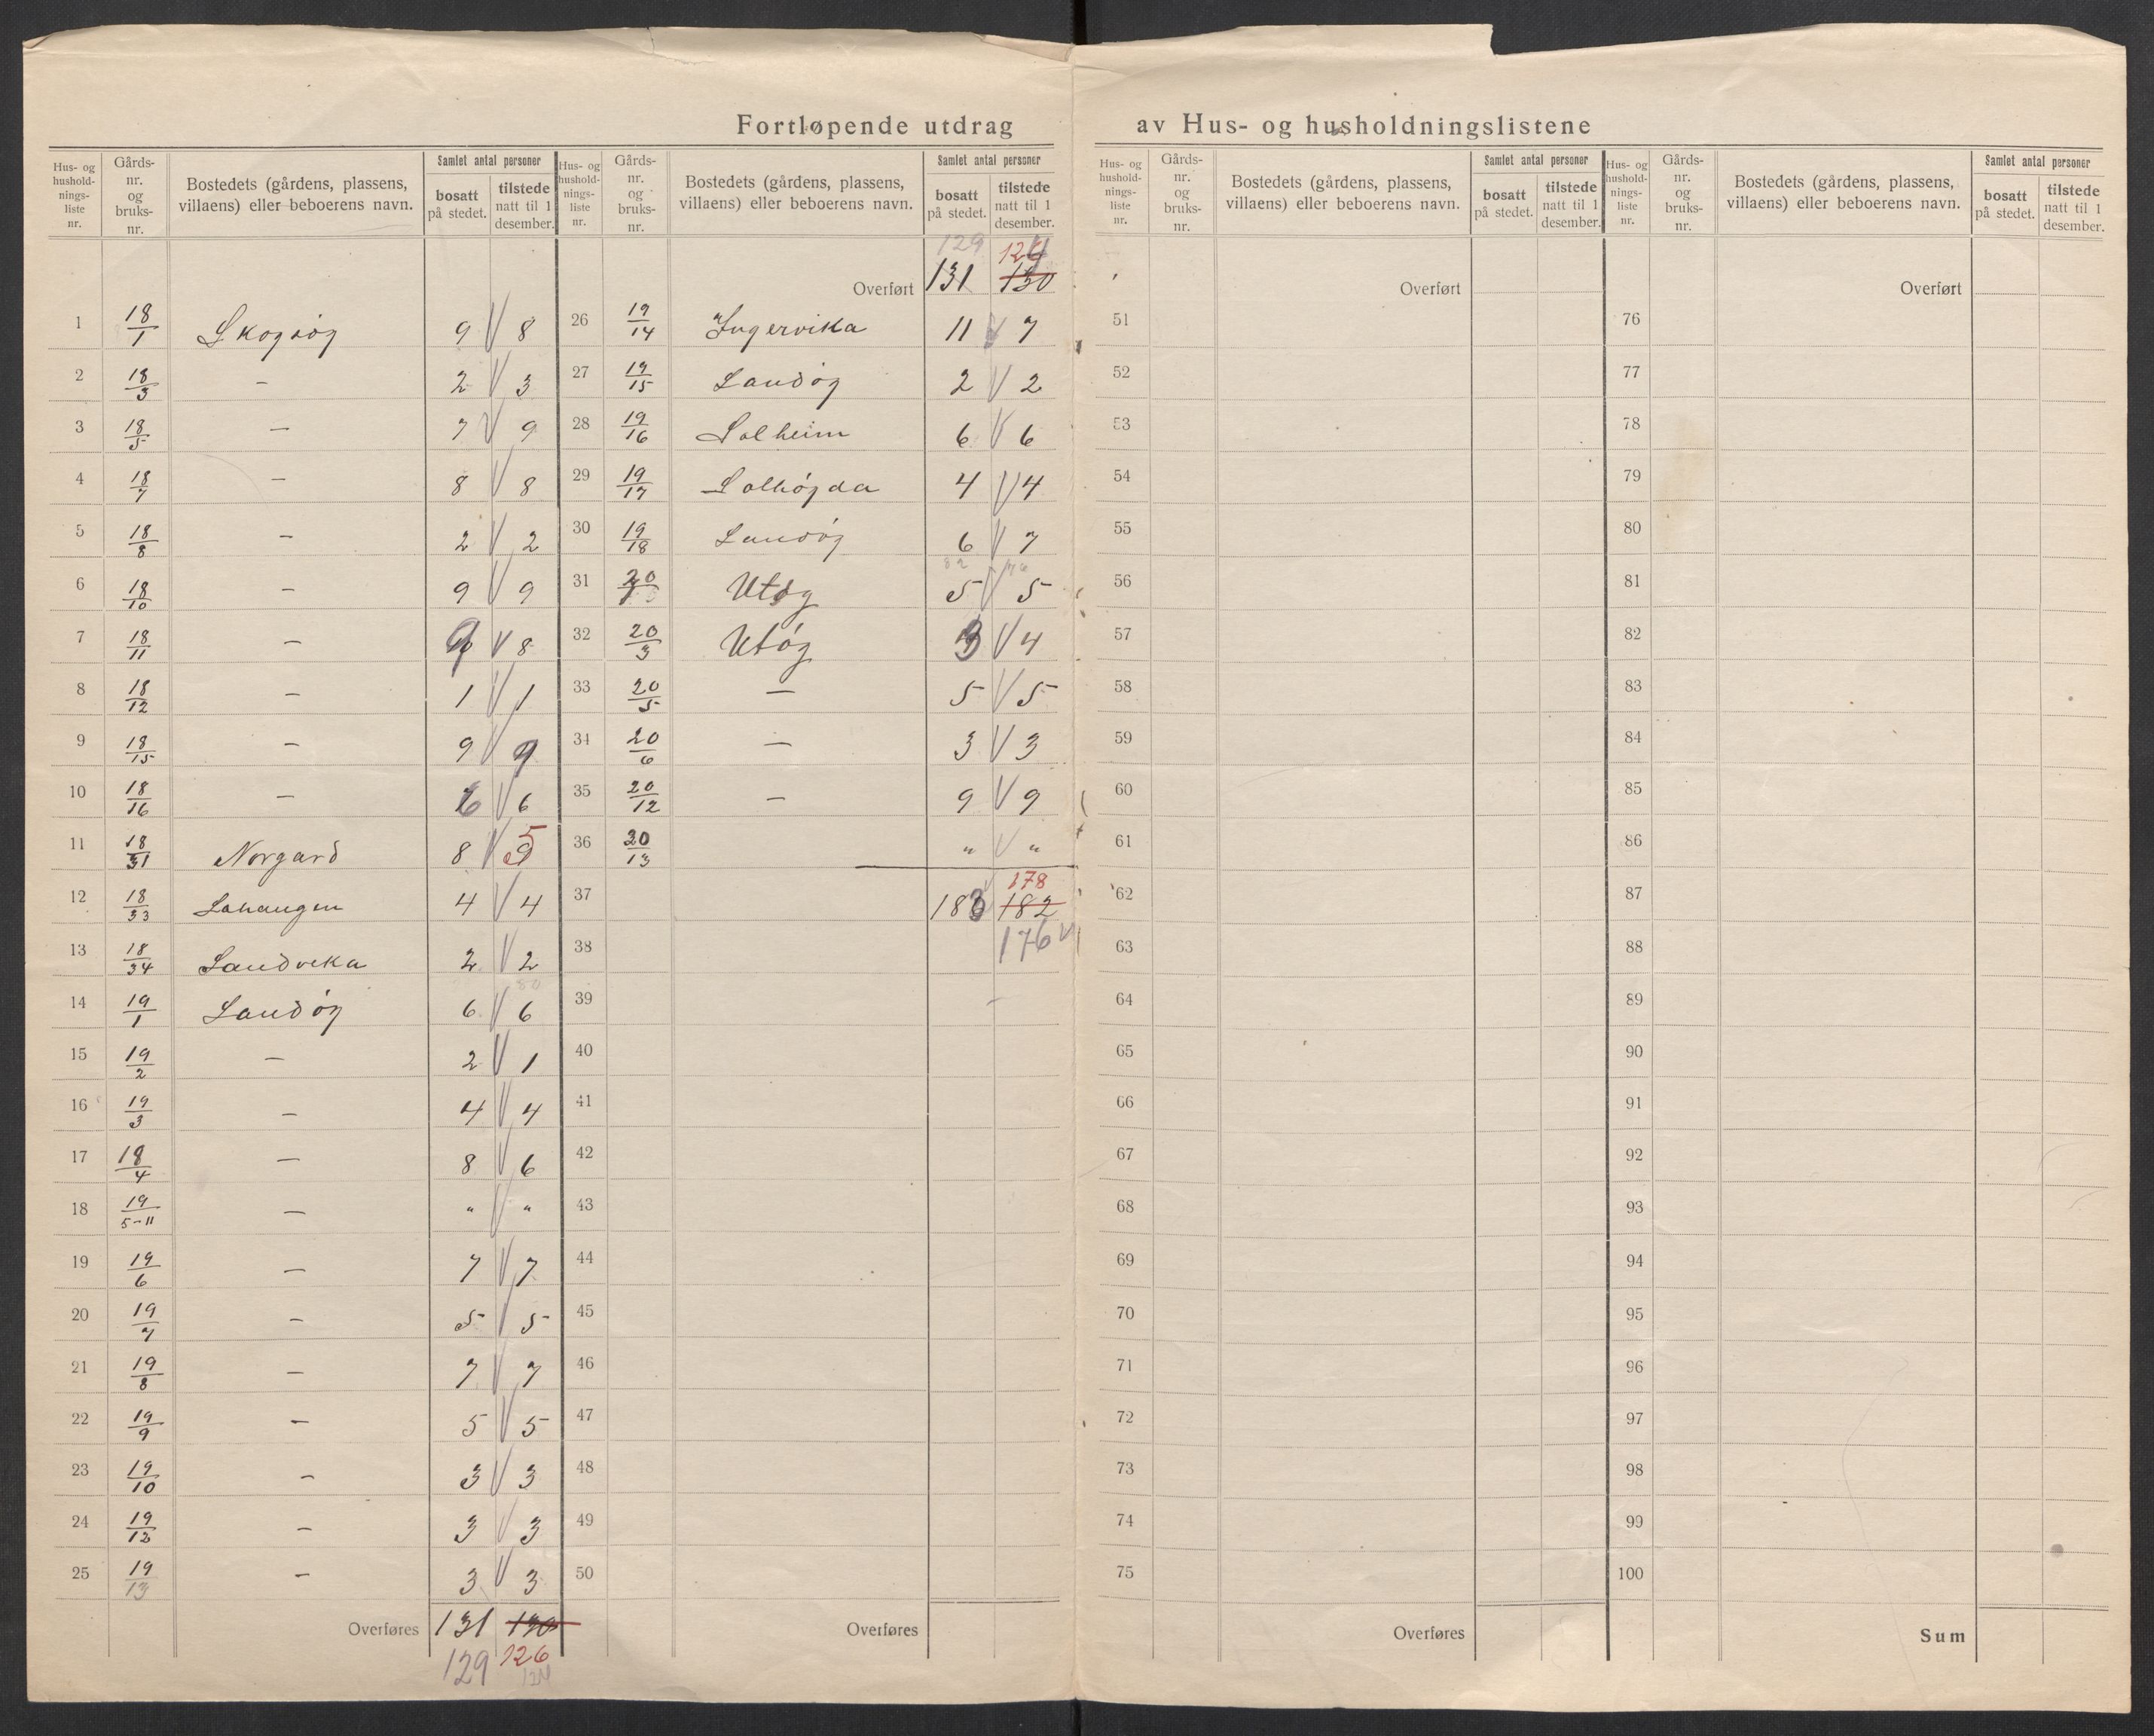 Fortløpende utdrag av Hus- og husholdningslistene
Hus- og hushold-nings-liste nr. | Gårds-nr. og bruks-nr. | Bostedets (gårdens, plassens, villaens) eller beboerens navn. | Samlet antal personer | bosatt på stedet. | tilstede natt til 1 desember.
1 18/1 Skogsøy 9 8
2 18/3 — 2 3
3 18/5 — 7 9
4 18/7 — 8 8
5 18/8 — 2 2
6 18/10 — 9 9
7 18/11 — 9 8
8 18/12 — 1 1
9 18/15 — 9 9
10 18/16 — 6 6
11 18/31 Norgard 8 5
12 18/33 Lahaugen 4 4
13 18/34 Sandvika 2 2
80
14 19/1 Sandøy 6 6
15 19/2 — 2 1
16 19/3 — 4 4
17 18/4 — 8 6
18 19/5-11 — " "
19 19/6 — 7 7
20 19/7 — 5 5
21 19/8 — 7 7
22 19/9 — 5 5
23 19/10 — 3 3
24 19/12 — 3 3
25 19/13 — 3 3
Overføres 131 130
129 126
124
Hus- og hushold-nings-liste nr. | Gårds-nr. og bruks-nr. | Bostedets (gårdens, plassens, villaens) eller beboerens navn. | Samlet antal personer | bosatt på stedet. | tilstede natt til 1 desember.
129 124
Overført 131 130
26 19/14 Ingervika 11 7
27 19/15 Sandøy 2 2
28 19/16 Solheim 6 6
29 19/17 Solhøgda 4 4
30 19/18 Sandøy 6 7
31 20/1 Utøy 5 5
32 20/3 Utøy 3 4
33 20/5 — 5 5
34 20/6 — 3 3
35 20/12 — 9 9
36 20/13 " "
178
37 183 182
176
38
39
40
41
42
43
44
45
46
47
48
49
50
Overføres
Hus- og hushold-nings-liste nr. | Gårds-nr. og bruks-nr. | Bostedets (gårdens, plassens, villaens) eller beboerens navn. | Samlet antal personer | bosatt på stedet. | tilstede natt til 1 desember.
Overført
51
52
53
54
55
56
57
58
59
60
61
62
63
64
65
66
67
68
69
70
71
72
73
74
75
Overføres
Hus- og hushold-nings-liste nr. | Gårds-nr. og bruks-nr. | Bostedets (gårdens, plassens, villaens) eller beboerens navn. | Samlet antal personer | bosatt på stedet. | tilstede natt til 1 desember.
Overført
76
77
78
79
80
81
82
83
84
85
86
87
88
89
90
91
92
93
94
95
96
97
98
99
100
Sum